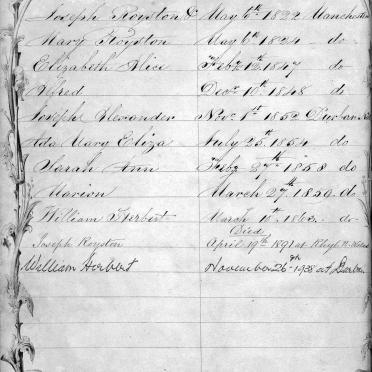 Joseph Royston May 6th 1822 Manchester
Mary Royston May 6th 1824 do
Elizabeth Alice Feby 12th 1847 do
Alfred Decr 10th 1848 do
Joseph Alexander Novr 1st 1852 Durban
Ada Mary Eliza July 25th 1854 do
Sarah Ann Feby 27th 1858 do
Marion March 27th do
William Herbert March do
Died
Joseph Royston April 19th 1891 at Rhyl N. Wales
William Herbert November 26th 1938 at Durban